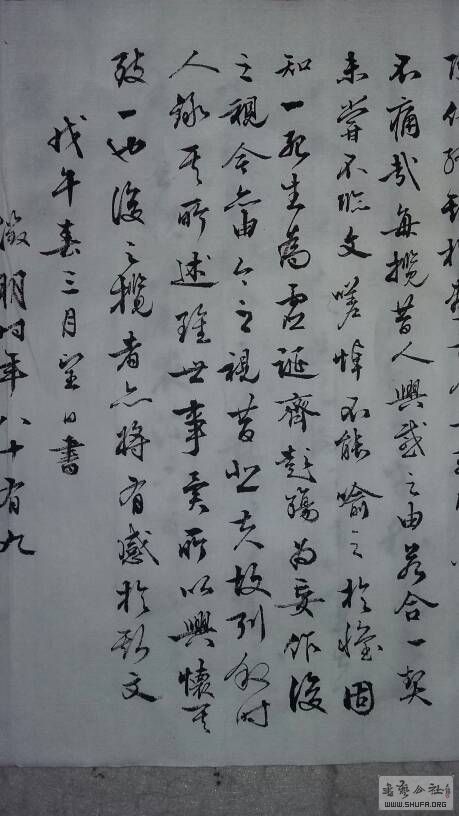 不痛哉每攬昔人興感之由若合一契
未嘗不臨文嗟悼不能喻之於懷固
知一死生為虛誕齊彭殤為妄作後
之視今亦由今之視昔悲夫故列敘時
人錄其所述雖世事異所以興懷其
致一也後之攬者亦將有感於斯文
戊午春三月望日書
徵明時年八十有九
書藝公社
WWW.SHUFA.ORG